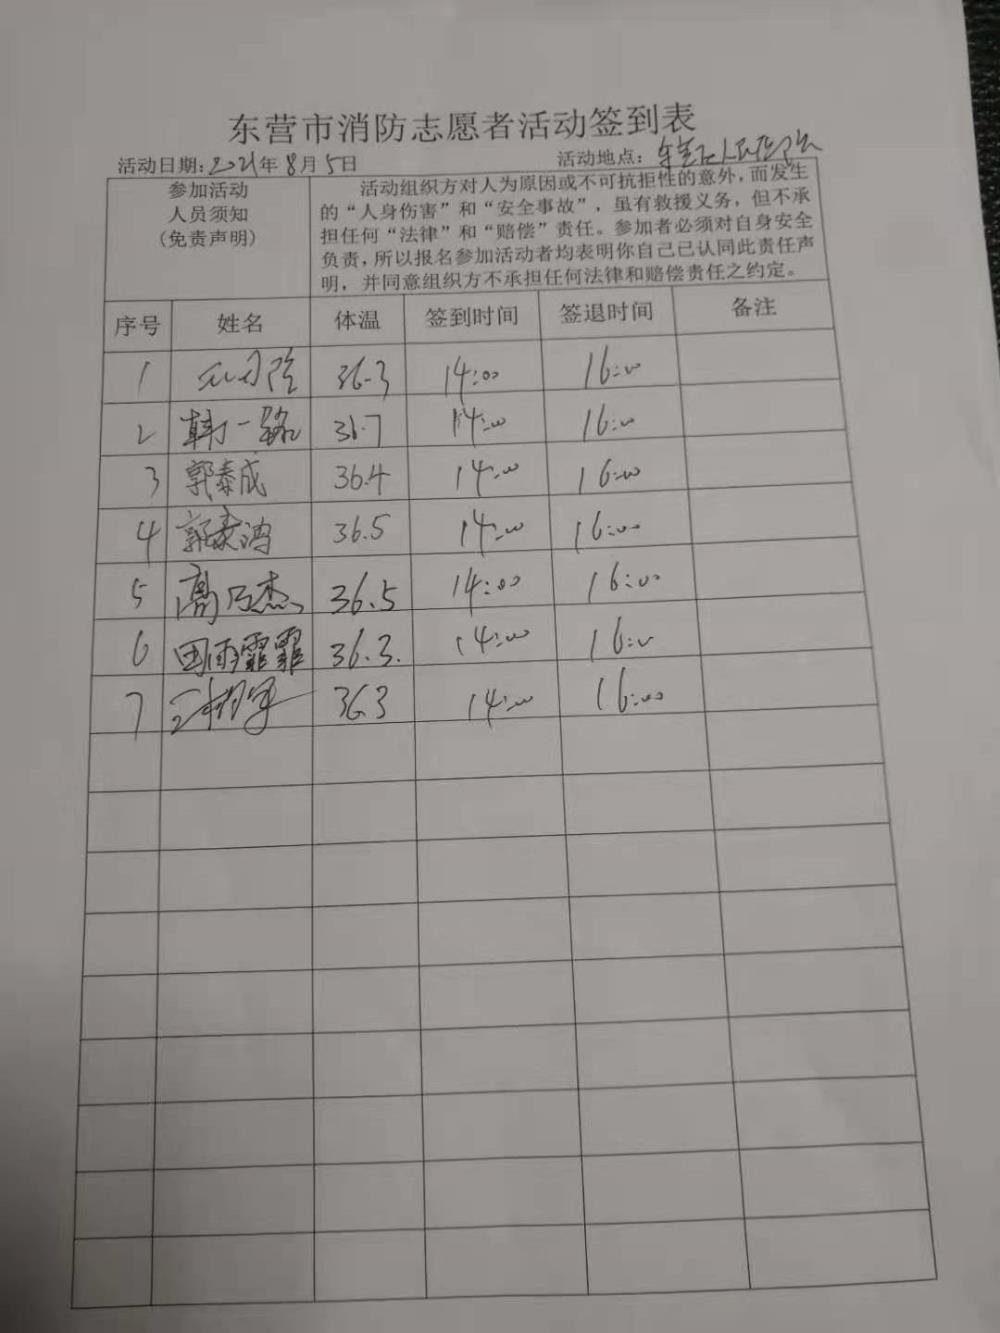 东营市消防志愿者活动签到表
活动日期:2021年8月5日 活动地点：东营区人民医院
参加活动
人员须知
(免责声明)
活动组织方对人为原因或不可抗拒性的意外,而发生
的“人身伤害”和“安全事故”，虽有救援义务，但不承
担任何“法律”和“赔偿”责任。参加者必须对自身安全
负责,所以报名参加活动者均表明你自己已认同此责任声
明，并同意组织方不承担任何法律和赔偿责任之约定。
序号 姓名 体温 签到时间 签退时间 备注
1 36.3 14:00 16:00
2 韩一路 36.7 14:00 16:00
3 郭泰成 36.4 14:00 16:00
4 郭泰鸿 36.5 14:00 16:00
5 高乃杰 36.5 14:00 16:00
6 田雨霏霏 36.3. 14:00 16:00
7 36.3 14:00 16:00